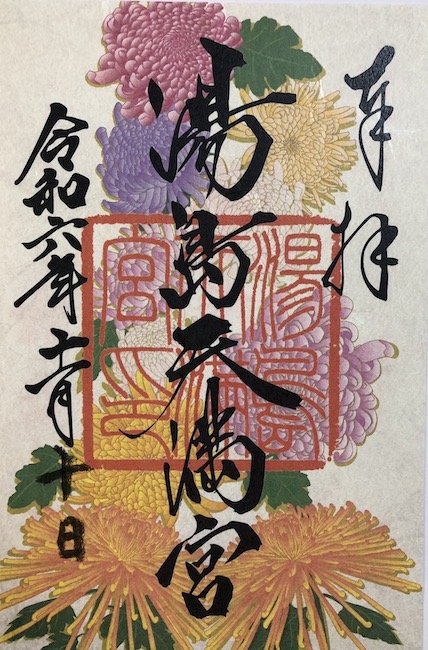 奉拝
湯島天満宮
湯島天満宮之印
令和六年十一月十日